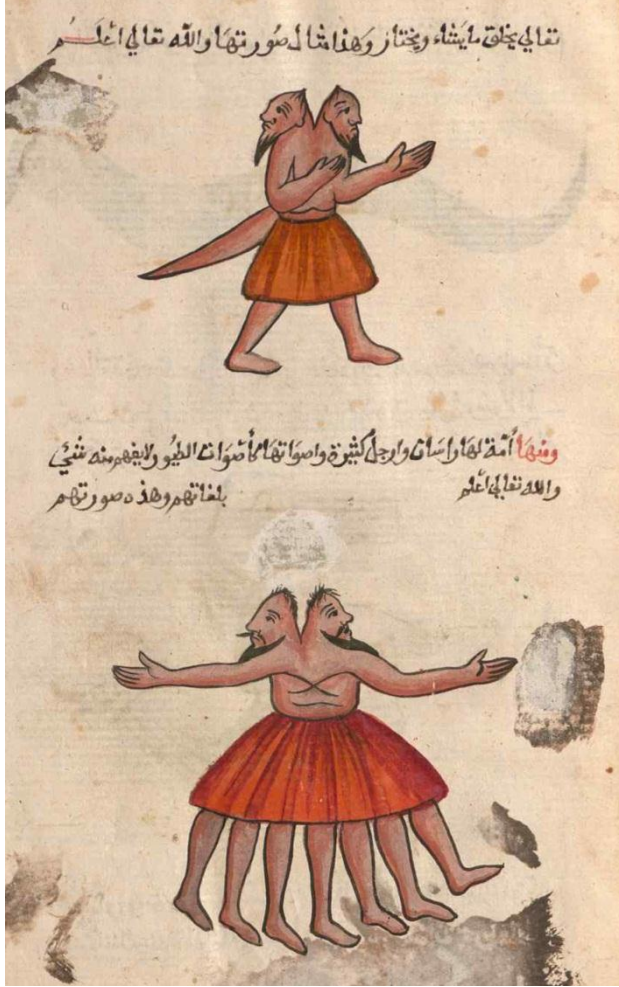 تعالي يخلق ما يشاء ويختار وهذا مثال صورتها والله تعالي اعلم
ومنها أمة لها راسان وارجل كثيرة واصواتها كأصوات الطيور لا يفهم منه شئ
بلغاتهم وهذه صورتهم والله تعالي أعلم